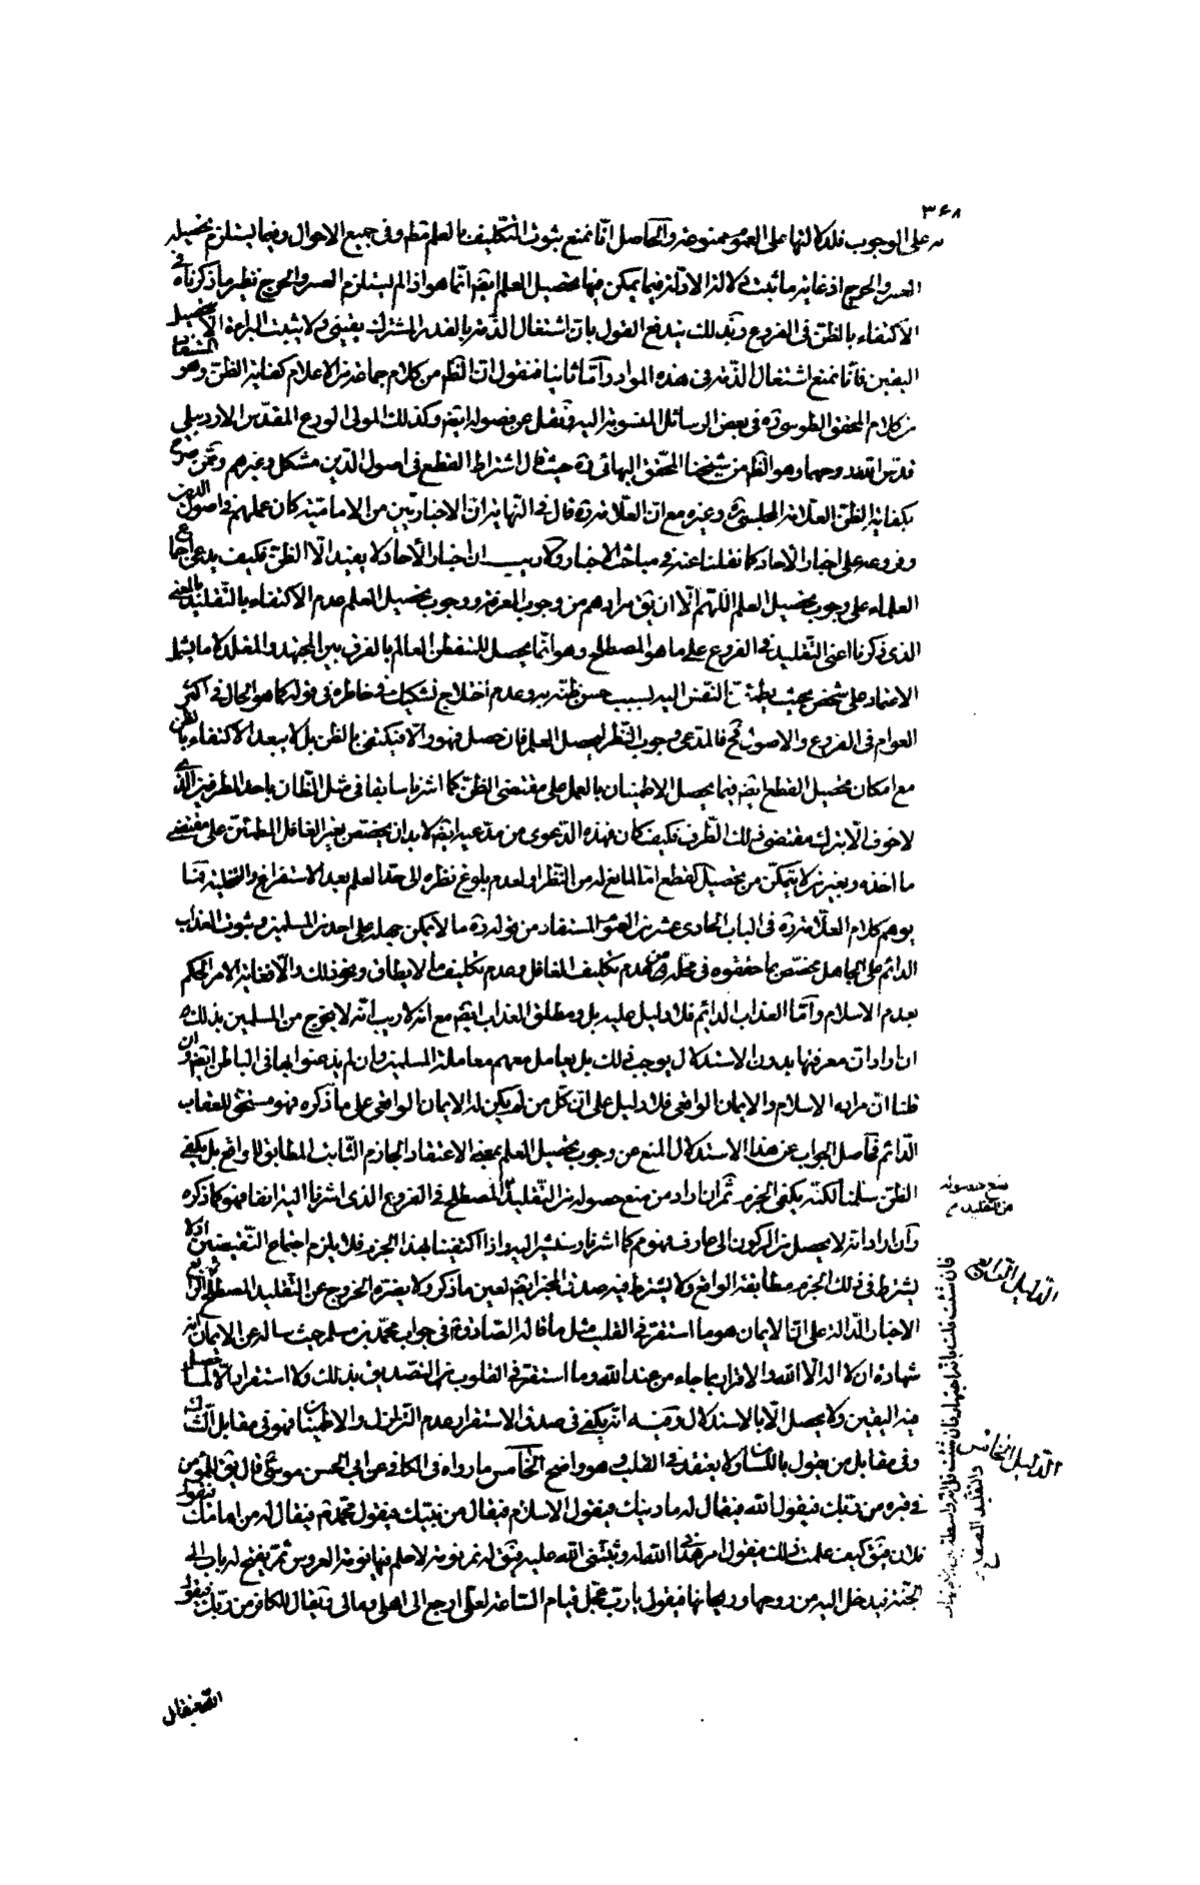 ٣۶٨
به على الوجوب فلدلالتها على العموم ممنوعة والحاصل انا نمنع ثبوت التكليف بالعلم قطعا وفى جميع الاحوال وفيما يستلزم تحصيله
العسر والحرج اذ غاية ما ثبت دلالة الادلة فيما يمكن فيها تحصيل العلم ايضا انما هو اذا لم يستلزم العسر والحرج نظير ما ذكرناه فى
الاكتفاء بالظن فى الفروع وبذلك يندفع القول بان اشتغال الذمة بالقدر المشترك يقينى ولا يثبت البرائة الا بتحصيل
اليقين فانا نمنع اشتغال الذمة فى هذه المواد واما ثانيا فنقول ان الظم من كلام جماعة من الاعلام كفاية الظن وهو المستفاد
من كلام المحقق الطوسى ره فى بعض الرسائل المنسوبة اليه ونقل عن فصوله ايضا وكذلك المولى الورع المقدس الاردبيلى
قدس الله روحهما وهو الظم من شيخنا المحقق البهائى ره حيث قال اشتراط القطع فى اصول الدين مشكل وغيرهم وممن صرح
بكفاية الظن العلامة المجلسى ره وغيره مع ان العلامة ره قال فى النهاية ان الاخباريين من الامامية كان عملهم فى اصول الدين
وفروعه على اخبار الاحاد كما نقلنا عنه فى مباحث الاخبار ولا ريب ان اخبار الاحاد لا يفيد الا الظن فكيف يدعى اجماع
العلماء على وجوب تحصيل العلم اللهم الا ان يق مرادهم من وجوب المعرفة ووجوب تحصيل العلم عدم الاكتفاء بالتقليد بالمعنى
الذى ذكرنا اعنى التقليد فى الفروع على ما هو المصطلح وهو انما يحصل للمتفطن العالم بالفرق بين المجتهد والمقلد لا ما يشمل
الاعتماد على شخص بحيث يطمئن النفس اليه بسبب حسن ظنه به وعدم اختلاج تشكيك فى خاطره فى قوله كما هو الحال فى اكثر
العوام فى الفروع والاصول فح فالمدعى وجوب النظر ليحصل العلم فان حصل فهو والا فيكتفى بالظن بل لا يبعد الاكتفاء بالظن
مع امكان تحصيل القطع ايضا فيما يحصل الاطمينان بالعمل على مقتضى الظن كما اشرنا سابقا فى مثل الظان باحد الطرفين الذى
لا خوف الا بترك مقتضى ذلك الطرف فكيف كان فهذه الدعوى من مدعيه ايضا لا بد ان يختص بغير الغافل المطمئن على مقتضى
ما اخذه وبغير من لا يتمكن من تحصيل القطع اما لمانع له من النظر او لعدم بلوغ نظره الى حد العلم بعد الاستفراغ والتخلية فما
يوهم كلام العلامة ره فى الباب الحادى عشر من العموم المستفاد من قوله ره ما لا يمكن جهله على احد من المسلمين وثبوت العذاب
الدائم على الجاهل مختص بما حققوه فى محله من عدم تكليف الغافل وعدم تكليف ما لا يطاق ونحو ذلك والا فغاية الامر الحكم
بعدم الاسلام واما العذاب الدائم فلا دليل عليه بل ومطلق العذاب ايضا مع انه لا ريب انه لا يخرج من المسلمين بذلك
ان اراد ان معرفتها بدون الاستدلال يوجب ذلك بل يعامل معهم معاملة المسلمين وان لم يذعنوا بها فى الباطن ايضا وان
قلنا ان مراده الاسلام والايمان الواقعى فلا دليل على ان كل من لم يكن له الايمان الواقعى على ما ذكره فهو مستحق للعقاب
الدائم فحاصل الجواب عن هذا الاستدلال المنع من وجوب تحصيل العلم بمعنى الاعتقاد الجازم الثابت المطابق للواقع بل يكفى
الظن سلمنا لكنه يكفى الجزم ثم ان اراد من منع حصوله من التقليد المصطلح فى الفروع الذى اشرنا اليه انفا فهو كما ذكره
وان اراد انه لا يحصل من الركون الى عارف فهو مم كما اشرنا وسنشير اليه واذا اكتفينا بهذا الجزم فلا يلزم اجتماع النقيضين اذ لا
يشترط فى ذلك الجزم مطابقة الواقع ولا يشترط فيه صدق المخبر ايضا لعين ما ذكر ولا يضره الخروج عن التقليد المصطلح الرابع
الاخبار الدالة على ان الايمان هو ما استقر فى القلب مثل ما قاله الصادق ع فى جواب محمد بن مسلم حيث ساله عن الايمان انه
شهادة ان لا اله الا الله والاقرار بما جاء من عند الله وما استقر فى القلوب من التصديق بذلك ولا استقرار الا لما حصل
منه اليقين ولا يحصل الا بالاستدلال وفيه انه يكفى فى صدق الاستقرار عدم التزلزل والاطمينان فهو فى مقابل الشك
وفى مقابل من يقول باللسان ولا يعتقد فى القلب وهو واضح الخامس ما رواه فى الكافى عن ابى الحسن موسى ع قال يق للمؤمن
فى قبره من ربك فيقول الله فيقال له ما دينك فيقول الاسلام فيقال من نبيك فيقول محمد ص فيقال له من امامك فيقول
فلان فيق كيف علمت ذلك فيقول امر هدانى الله له وثبتنى الله عليه فيق له نم نومة لا حلم فيها نومة العروس ثم يفتح له باب الى
الجنة فيدخل اليه من روحها وريحانها فيقول يا رب عجل قيام الساعة لعلى ارجع الى اهلى ومالى ويقال للكافر من ربك فيقول
منع حصوله
من التقليد م
الدليل الرابع
الدليل الخامس